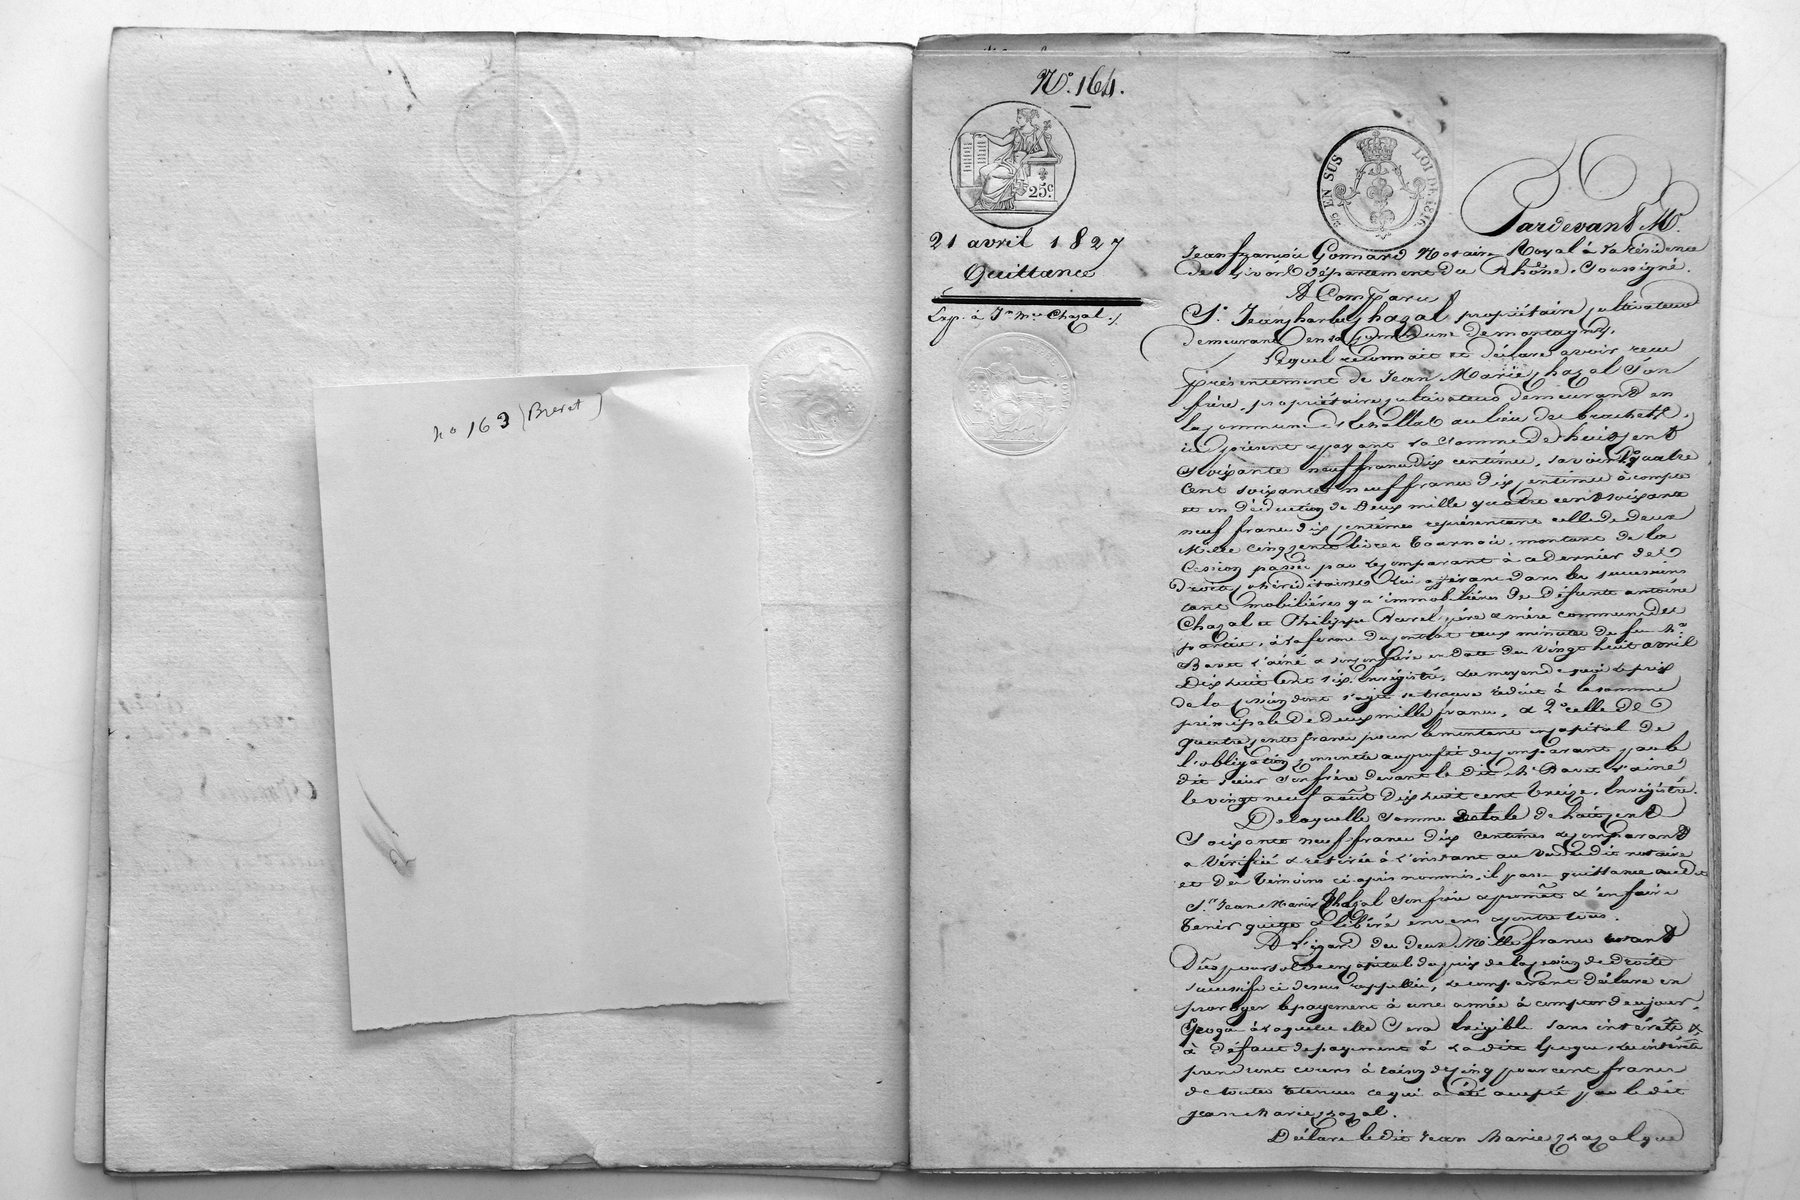 no 163 (Brevet)
N.o 164.
25c.
EN SUS
LOI DE 1816
21 avril 1827
Quittance
Exp. à Jn. Mie Chazal
Pardevant Me.
Jean françois Gonnard Notaire Royal à la résidence
de Givors département du Rhône, Soussigné.
A Comparu
Sr. Jean Charles Chazal propriétaire cultivateur
demeurant en la Commune de montagny,
Lequel reconnait et déclare avoir reçu
présentement de Jean Marie Chazal Son
frère, propriétaire cultivateur demeurant en
la commune d'Echallat au lieu de
ici présent ayant la Somme de huit cent
Soixante neuf francs dix centimes, savoir 1o quatre
cent soixante neuf francs dix centimes à compte
et en déduction de Deux mille quatre cent soixante
neuf francs dix centimes représentant celle de deux
Mille cinq cent livres tournois, montant de la
Cession passée par le comparant à ce dernier des
droits héréditaires lui afférant dans les successions
tant mobilières qu'immobilières de défunts antoine
Chazal et Philippe père & mère communs des
parties, à la forme du contrat reçu minutes de feu Me.
l'ainé & son confrère en date du Vingt huit avril
Dix huit cent six, Enregistré, au moyen de quoi le prix
de la cession dont s'agit se trouve réduit à la somme
principale de deux mille francs, & 2o celle de
quatre cents francs pour le montant en capital de
l'obligation consentie au profit du comparant par le
dit sieur Son frère devant le dit Me. l'ainé
le vingt neuf août Dix huit cent treize, Enregistré.
De laquelle Somme totale de huit cent
Soixante neuf francs dix Centimes le comparant
a Vérifiée & retirée à l'instant au Vu du dit notaire
et des témoins ci-après nommés, il passe quittance au dit
Sr. Jean Marie Chazal Son frère & promet de l'en faire
tenir quitte & libéré envers & contre tous.
A l'égard des deux Mille francs restant
Dûs pour solde en capital du prix de la cession de droits
successifs ci dessus rappellée, le comparant déclare en
proroger le payement à une année à compter de ce jour,
Epoque à laquelle elle Sera Exigible sans intérêts &
à défaut de payement à la dite Epoque, les intérêts
prendront cours à raison de cinq pour cent francs
de toutes retenues ce qui a été accepté par le dit
Jean Marie Chazal.
Déclare le dit Jean Marie Chazal que